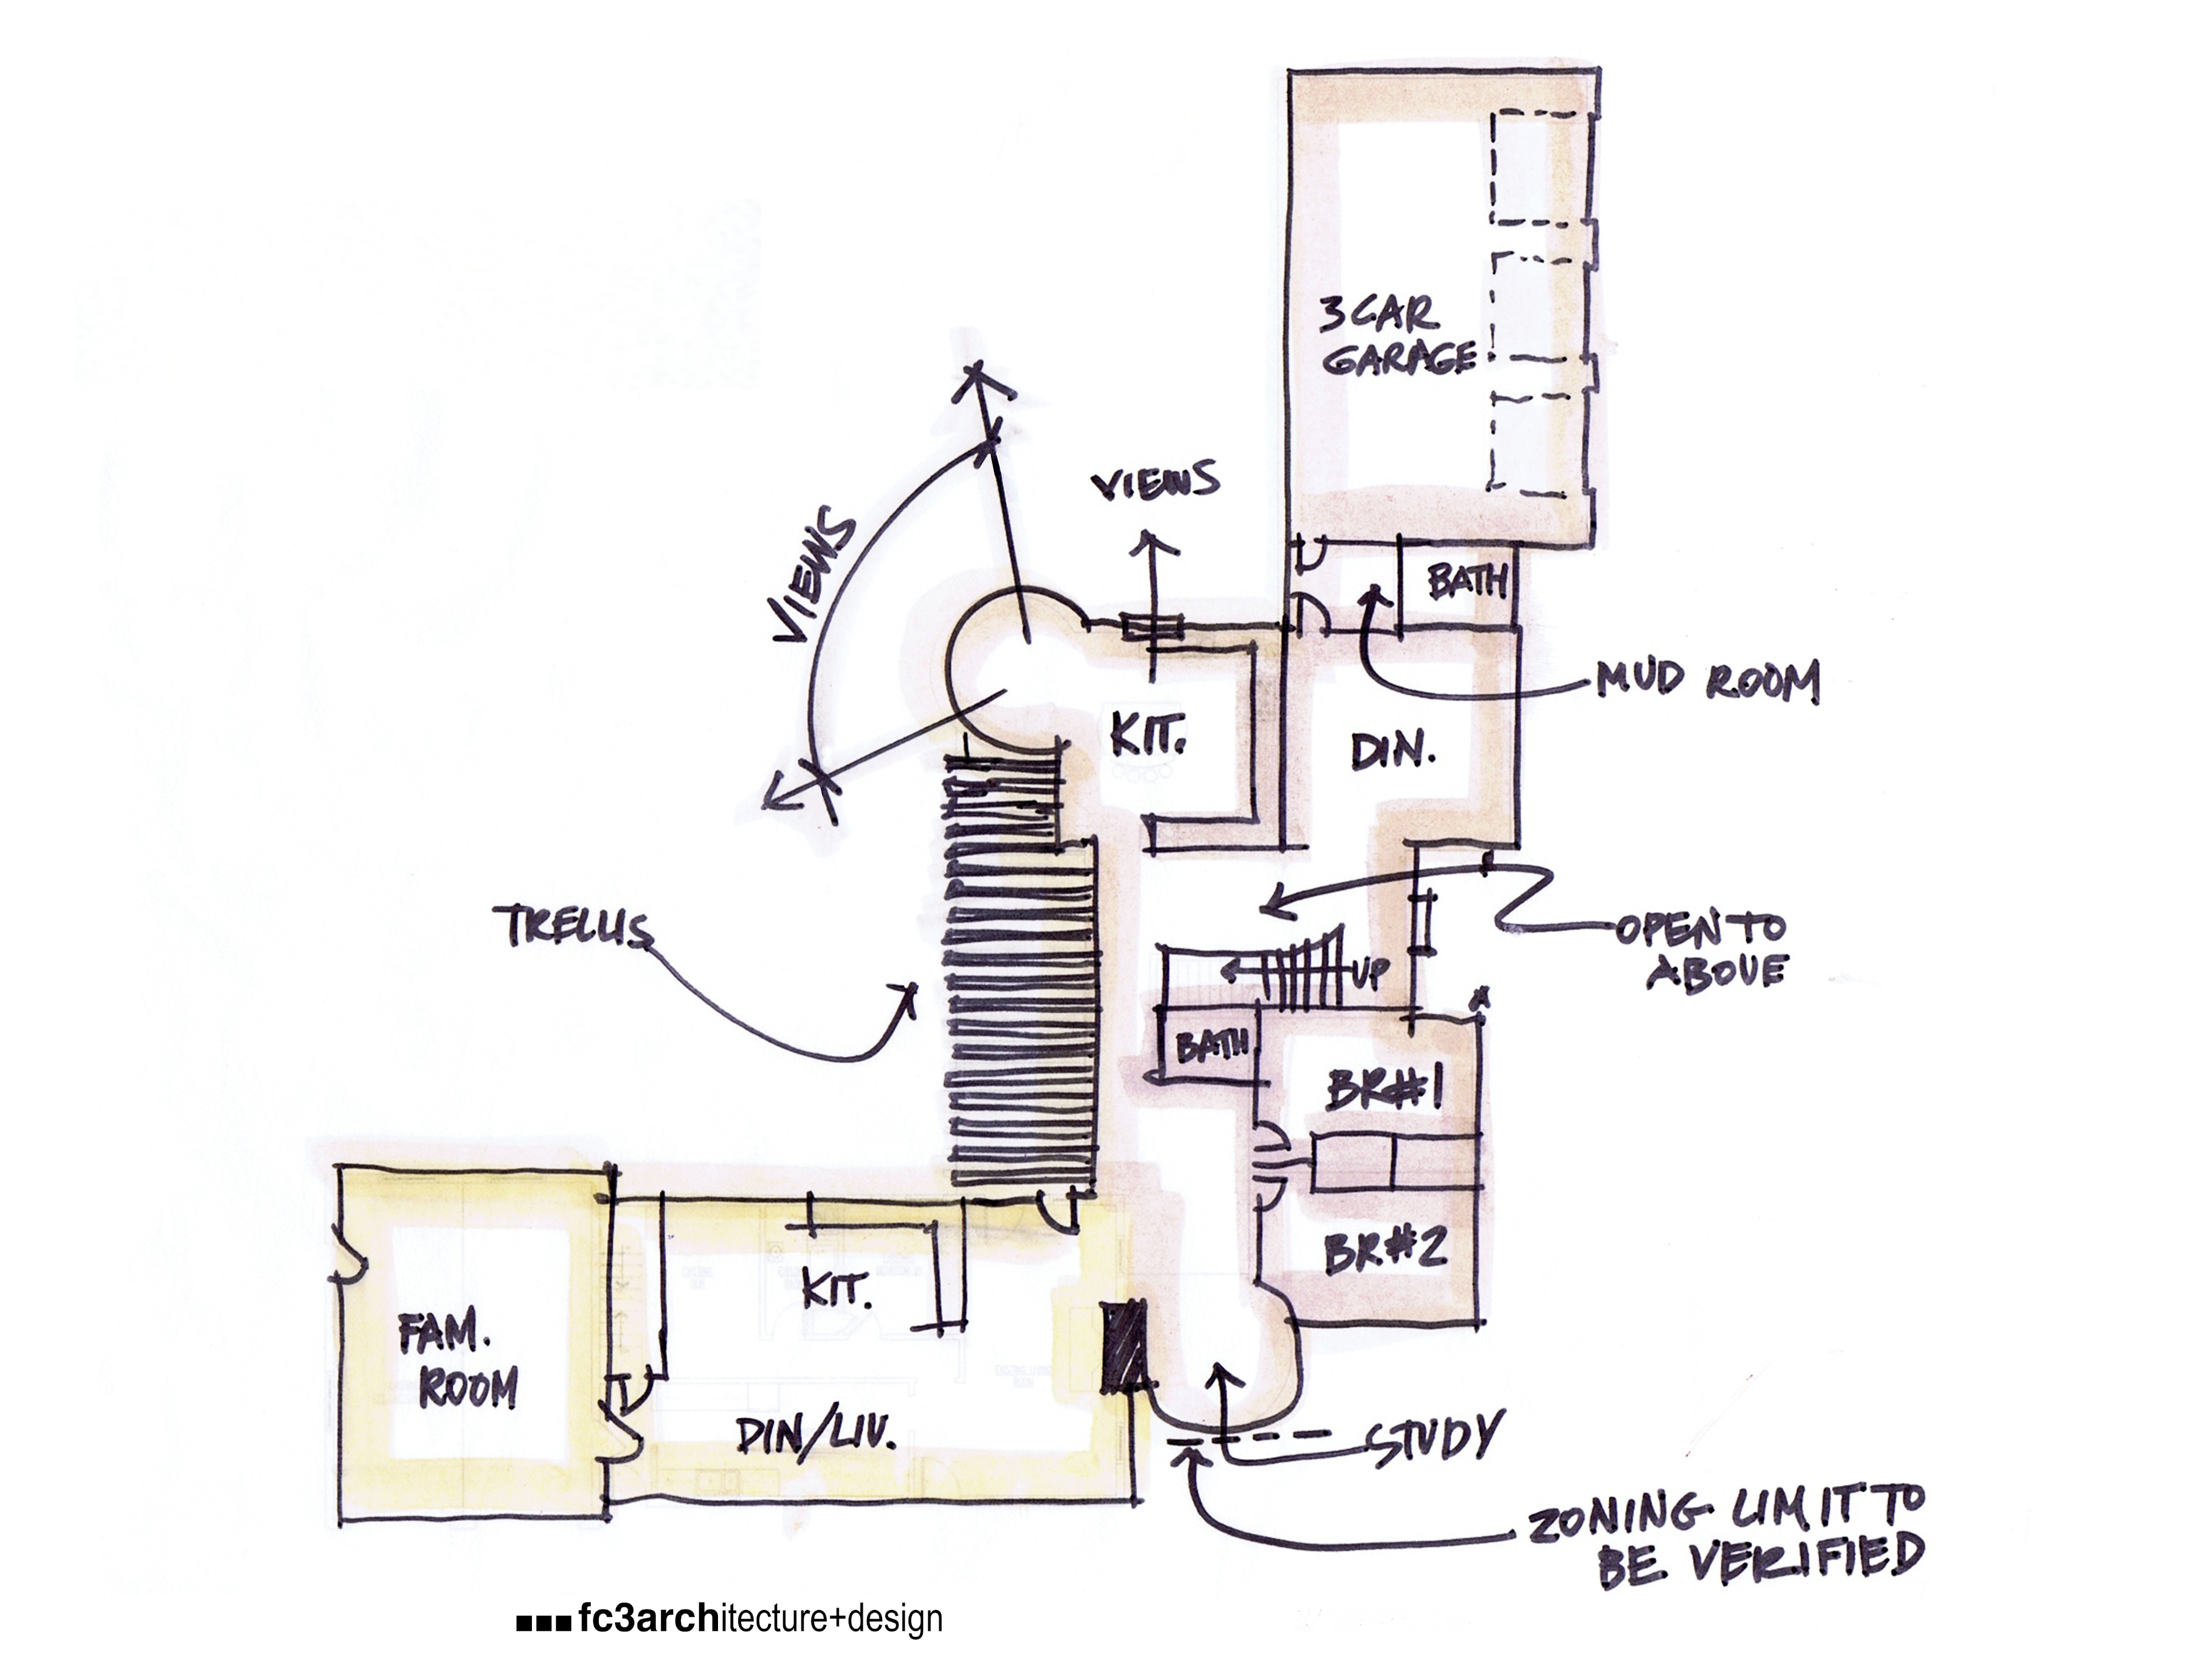 3 CAR
GARAGE
VIEWS
VIEWS
BATH
MUD ROOM
KIT.
DIN.
TRELLIS
OPEN TO
ABOVE
UP
BATH
BR#1
BR#2
KIT.
FAM.
ROOM
DIN/LIV.
STUDY
ZONING LIMIT TO
BE VERIFIED
fc3architecture+design